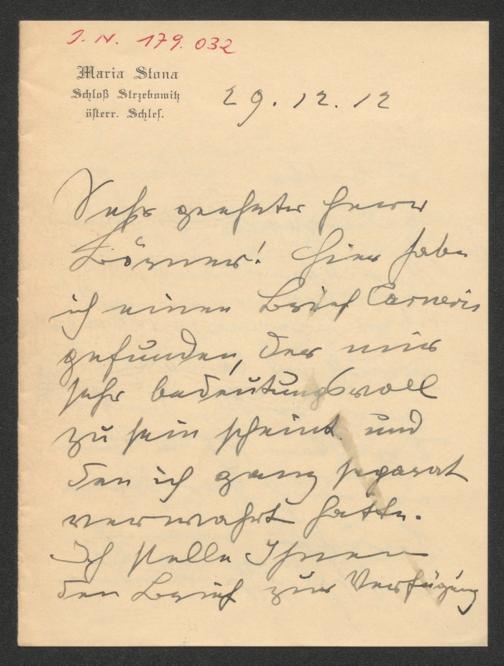 J. N. 179.032
Maria Stona
Schloß Strzebowitz
österr. Schles.
29.12.12
Sehr geehrter Herr
Börner! Hier habe
ich einen Brief Carneris
gefunden, der mir
sehr bedeutungsvoll
zu sein scheint und
den ich ganz separat
verwahrt hatte.
Ich stelle Ihnen
den Brief zur Verfügung